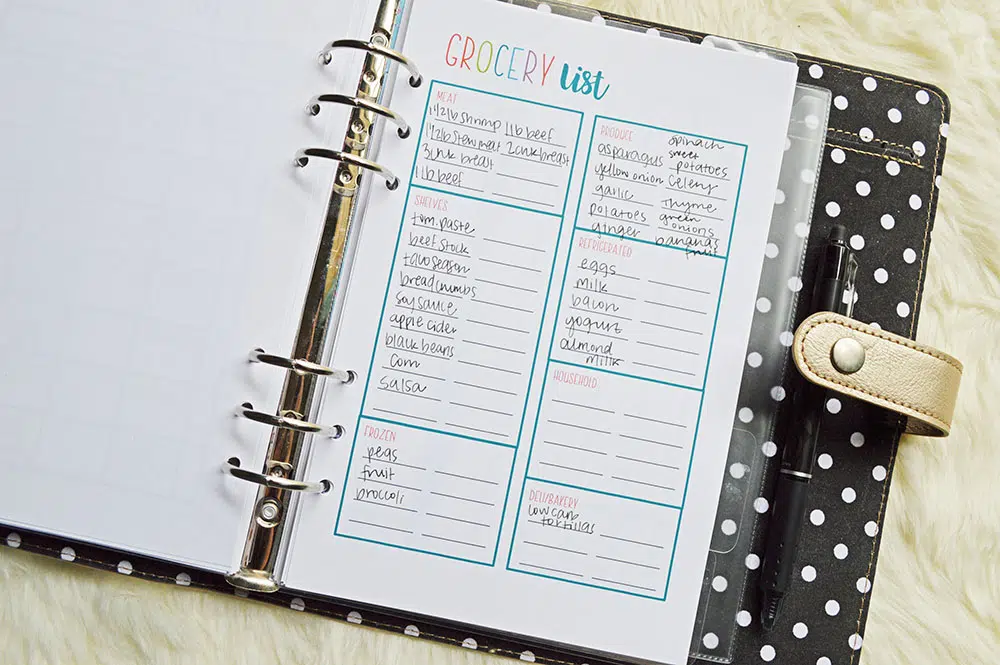 GROCERY List
MEAT
1 1/2 lb shrimp 1 lb beef
1 1/2 lb stew meat 2 chk breast
3 chk breast
1 lb beef
SHELVES
tom. paste
beef stock
taco season
breadcrumbs
soy sauce
apple cider
black beans
corn
salsa
FROZEN
peas
fruit
broccoli
PRODUCE
asparagus
yellow onion
garlic
potatoes
ginger
spinach
sweet
potatoes
celery
thyme
green
onions
bananas
fruit
REFRIGERATED
eggs
milk
bacon
yogurt
almond
milk
HOUSEHOLD
DELI/BAKERY
low carb
tortillas